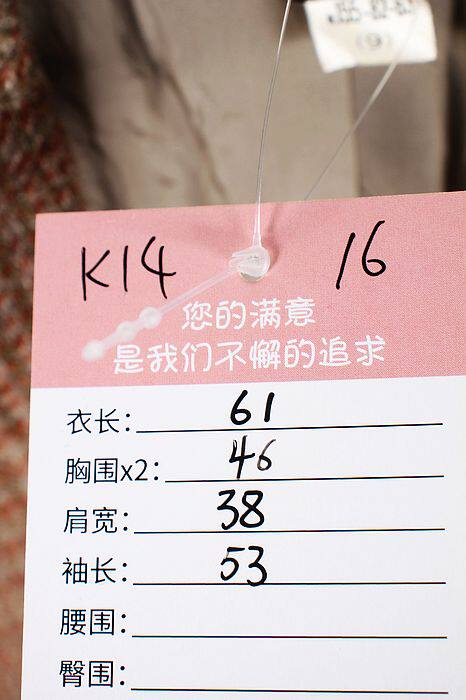 (9)
K14 16
您的满意
是我们不懈的追求
衣长: 61
胸围x2: 46
肩宽: 38
袖长: 53
腰围:
臀围: